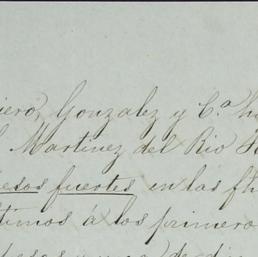 iero, Gonzalez y C.ª h
Martinez del Rio
esos fuertes en las f
timos á los primero
pesos